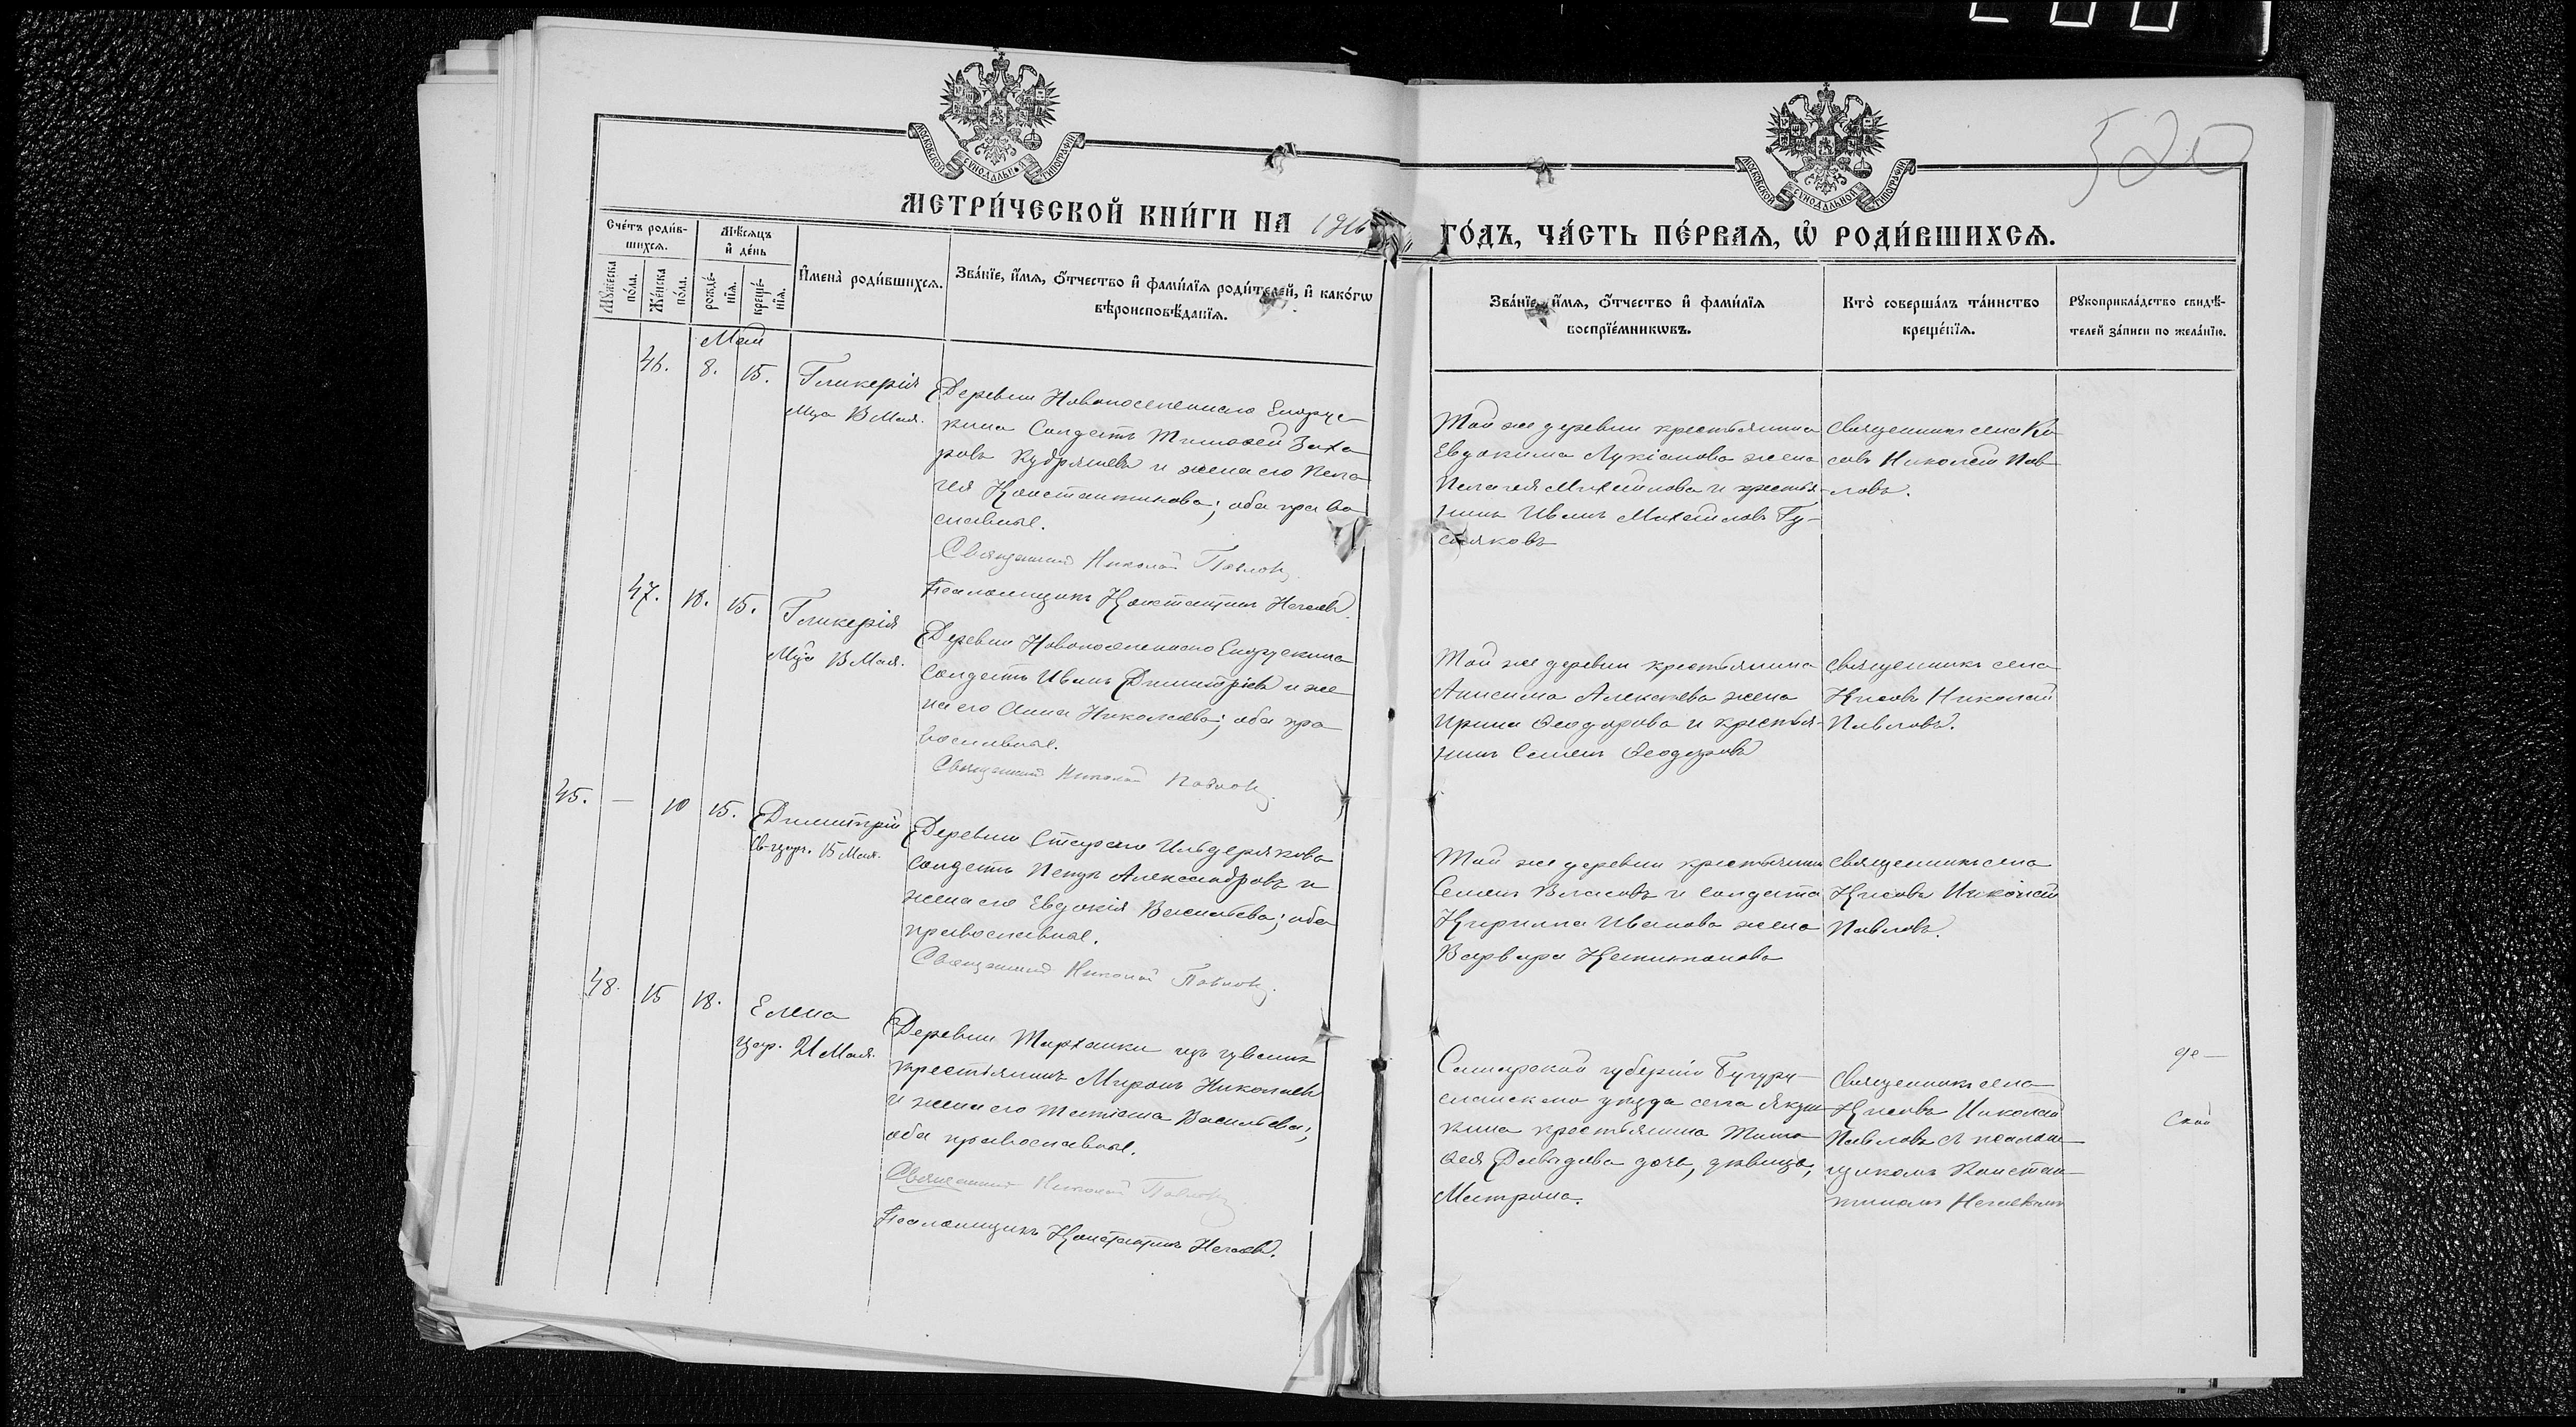 520
МОСКОВСКОЙ СѴНОДАЛЬНОЙ ТИПОГРАФІИ
МОСКОВСКОЙ СѴНОДАЛЬНОЙ ТИПОГРАФІИ
МЕТРИ́ЧЕСКОЙ КНИ́ГИ НА 1916
ГО́ДЪ, ЧА́СТЬ ПЕ́РВАЯ, Ѡ҆ РОДИ́ВШИХСЯ.
Сче́тъ роди́в-
шихся.
Мѣ́сяцъ
и҆ де́нь
Мꙋ́жеска по́ла.
Же́нска по́ла.
рожде́-
нїя.
креще́-
нїя.
И҆мена̀ роди́вшихся.
Зва́нїе, и҆́мя, ѻ҆́тчество и҆ фами́лїя роди́телей, и҆ како́гѡ
вѣроисповѣ́данїя.
Зва́нїе, и҆́мя, ѻ҆́тчество и҆ фами́лїя
воспрїе́мникѡвъ.
Кто̀ соверша́лъ та́инство
креще́нїя.
Рꙋкоприкла́дство свидѣ́-
телей за́писи по жела́нїю.
Май
46. 8. 15.
Гликерія
Мца 13 Мая.
Деревни Новопоселеннаго
солдатъ Тимофей Заха
ровъ Кудряшевъ и жена его Пела
гея Константинова; оба право
славные.
Священникъ Николай Павловъ.
Псаломщикъ Константинъ
Той же деревни крестьянина
Евдокима Лукіанова жена
Пелагея Михайлова и крестья-
нинъ Иванъ Михайловъ Гу-
Священникъ села Кі
совъ Николай Пав
ловъ.
47. 10. 15.
Гликерія
Мца 13 Мая.
Деревни Новопоселеннаго
солдатъ Иванъ Димитріевъ и же
на его Анна Николаева; оба пра
вославные.
Священникъ Николай Павловъ.
Той же деревни крестьянина
Анисима Алексѣева жена
Ирина Ѳеодорова и крестья-
нинъ Семенъ Ѳеодоровъ
Священникъ села
Николай
Павловъ.
45. — 10 15.
Димитрій
Св. цар. 15 Мая.
Деревни Стараго Ильдерякова
солдатъ Петръ Александровъ и
жена его Евдокія Васильева; оба
православные.
Священникъ Николай Павловъ.
Той же деревни крестьянинъ
Семенъ Власовъ и солдата
Кирилла Иванова жена
Варвара
Священникъ села
Николай
Павловъ.
48. 15 18.
Елена
цар. 21 Мая.
Деревни Тарханки изъ чувашъ
крестьянинъ Миронъ Николаевъ
и жена его Татіана Васильева;
оба православные.
Священникъ Николай Павловъ.
Псаломщикъ Константинъ
Самарской губерніи Бугуру
сланскаго уѣзда села Якуш
кина крестьянина Тимо
ѳея Давыдова дочь, дѣвица,
Матрона.
Священникъ села
Николай
Павловъ съ псалом
щикомъ Констан
тиномъ